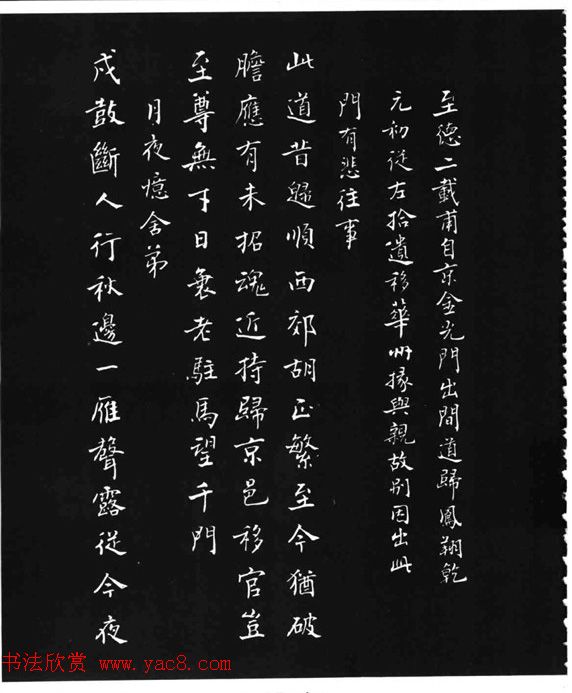 至德二載甫自京金光門出間道歸鳳翔乾
元初從左拾遺移華州掾與親故別因出此
門有悲往事
此道昔歸順西郊胡正繁至今猶破
膽應有未招魂近持歸京邑移官豈
至尊無才日衰老駐馬望千門
月夜憶舍弟
戍鼓斷人行秋邊一雁聲露從今夜
书法欣赏 www.yac8.com